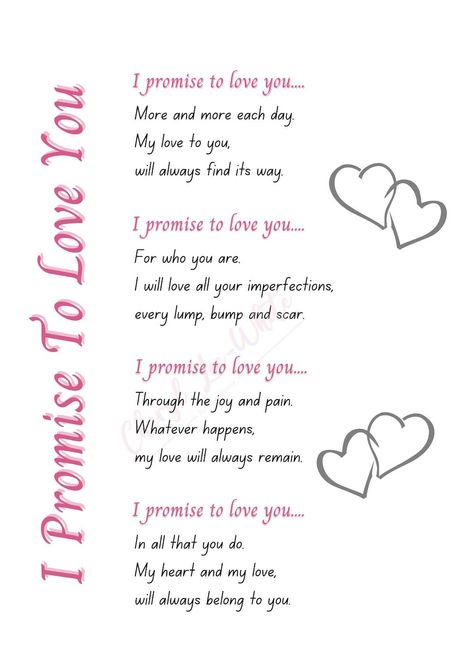 I Promise To Love You
I promise to love you....
More and more each day.
My love to you,
will always find its way.
I promise to love you....
For who you are.
I will love all your imperfections,
every lump, bump and scar.
I promise to love you....
Through the joy and pain.
Whatever happens,
my love will always remain.
I promise to love you....
In all that you do.
My heart and my love,
will always belong to you.